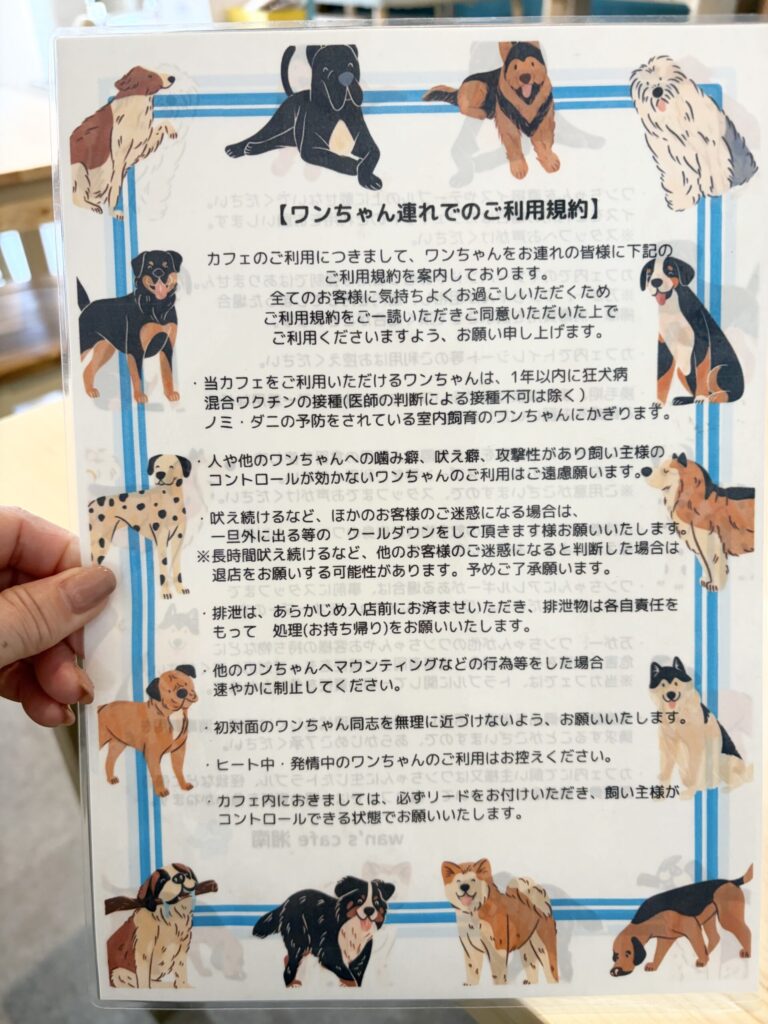 【ワンちゃん連れでのご利用規約】
カフェのご利用につきまして、ワンちゃんをお連れの皆様に下記の
ご利用規約を案内しております。
全てのお客様に気持ちよくお過ごしいただくため
ご利用規約をご一読いただきご同意いただいた上で
ご利用くださいますよう、お願い申し上げます。
・当カフェをご利用いただけるワンちゃんは、1年以内に狂犬病
混合ワクチンの接種(医師の判断による接種不可は除く)
ノミ・ダニの予防をされている室内飼育のワンちゃんにかぎります。
・人や他のワンちゃんへの噛み癖、吠え癖、攻撃性があり飼い主様の
コントロールが効かないワンちゃんのご利用はご遠慮願います。
・吠え続けるなど、ほかのお客様のご迷惑になる場合は、
一旦外に出る等の　クールダウンをして頂きます様お願いいたします。
※長時間吠え続けるなど、他のお客様のご迷惑になると判断した場合は
退店をお願いする可能性があります。予めご了承願います。
・排泄は、あらかじめ入店前にお済ませいただき、排泄物は各自責任を
もって　処理(お持ち帰り)をお願いいたします。
・他のワンちゃんへマウンティングなどの行為等をした場合
速やかに制止してください。
・初対面のワンちゃん同志を無理に近づけないよう、お願いいたします。
・ヒート中・発情中のワンちゃんのご利用はお控えください。
・カフェ内におきましては、必ずリードをお付けいただき、飼い主様が
コントロールできる状態でお願いいたします。
wan's cafe 湘南